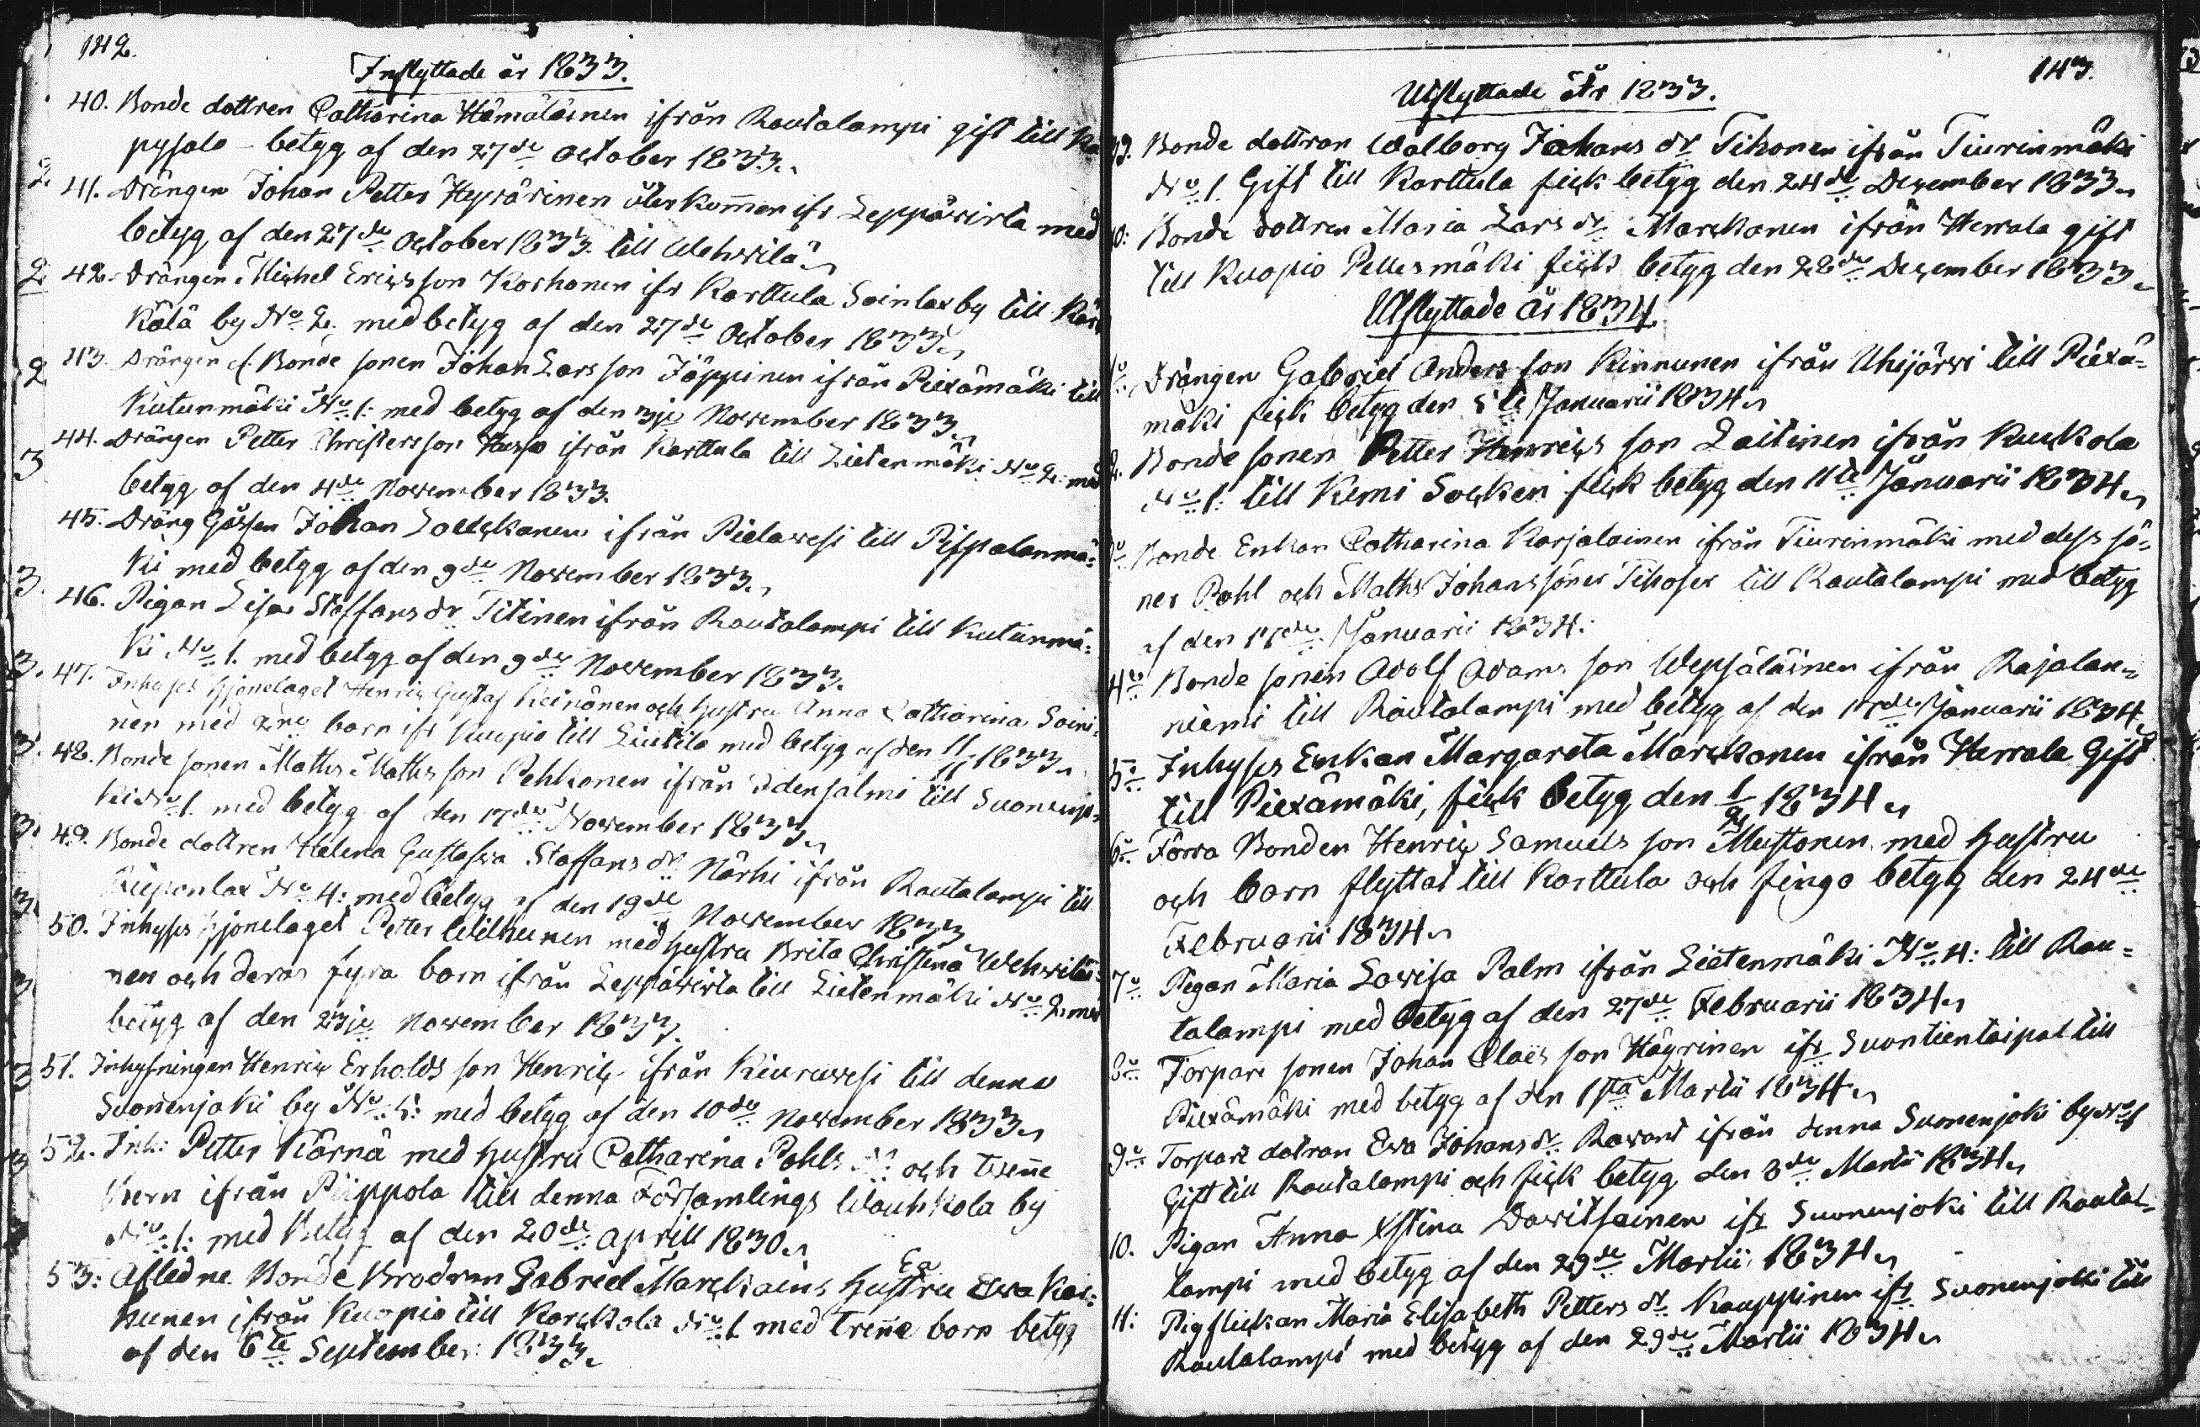 142.
Inflyttade år 1833.
40. Bonde dottren Catharina Hämäläinen ifrån Rautalampi gift till
pysalo - betyg af den 27de October 1833.
41. Drängen Johan Petter Hyvärinen återkommen ifr Leppävirta med
betyg af den 27de October 1833 till Wehvilä
42. Drängen Michel Ericsson Korhonen ifr Karttula Soinlax by till
kälä by No 2. med betyg af den 27de October 1833
43. Drängen Bonde sonen Johan Larsson Jäppinen ifrån Piexämäki till
Kutunmäki No 1: med betyg af den 3je November 1833
44. Drängen Petter Christersson ifrån Karttula till Lietenmäki No 2: med
betyg af den 4de November 1833.
45. Dräng Gåssen Johan ifrån Pielavesi till Pispalanmä-
ki med betyg af den 9de November 1833.
46. Pigan Lisa Staffans dr Titinen ifrån Rautalampi till Kutunmä-
ki No 1. med betyg af den 9de November 1833.
47. Inhyses hjonelaget Henric Gustaf Keinönen och hustru Anna Catharina Soini-
nen med 2ne barn ifr Kuopio till Liutila med betyg af den 11/11 1833
48. Bonde sonen Maths Mathsson Pehkonen ifrån Idensalmi till Suonenjo-
ki No 1. med betyg af den 17de November 1833
49. Bonde dottren Helena Gustafva Staffans dr Närhi ifrån Rautalampi till
Rieponlax No 4: med betyg af den 19de November 1833
50. Inhyses hjonelaget Petter Wilhunen med hustru Brita Christina Wehviläi-
nen och deras fyra barn ifrån Leppävirta till Lietenmäki No 2. med
betyg af den 23je November 1833.
51. Inhysningen Henric Erholds son Henric ifrån Kiuruvesi till denna
Suonenjoki by No 5: med betyg af den 10de November 1833
52. Inh: Petter Kärnä med hustru Catharina Pohls dr och tvenne
barn ifrån Piippola till denna Församlings Wauhkola by
No 1: med betyg af den 20de Aprill 1830
53: Afledne Bonde Brodren Gabriel Marckains hustru Eva Kar-
hunen ifrån Kuopio till Karckola No 1 med trenne barn betyg
af den 6te September 1833
143.
Utflyttade År 1833.
39. Bonde dottran Walborg Johans dr Tikonen ifrån Tiurinmäki
No 1. Gift till Karttula fick betyg den 24de December 1833
40: Bonde dottren Maria Lars dr Marckanen ifrån Herrala gift
till Kuopio Pellesmäki fick betyg den 28de December 1833
Utflyttade År 1834
1o Drängen Gabriel Andersson Kinnunen ifrån Uhijärvi till Piexä-
mäki fick betyg den 5te Januarii 1834
2. Bonde sonen Petter Henrics son Laitinen ifrån Kuckola
No 1: till Kemi Socken fick betyg den 11te Januarii 1834
3o Bonde Enkan Catharina Karjalainen ifrån Tiurinmäki med dess sö-
ner Pohl och Maths Johans söner till Rautalampi med betyg
af den 17de Januarii 1834.
4o Bonde sonen Adolf Adams son Wepsäläinen ifrån Rajalan-
niemi till Rautalampi med betyg af den 17de Januarii 1834
5o Inhyses Enkan Margareta Marckanen ifrån Herrala Gift
till Piexämäki, fick betyg den 1/2 1834
6o Förra Bonden Henric Samuels son Mustonen med hustru
och barn flyttat till Karttula och fingo betyg den 24de
Februarii 1834
7o Pigan Maria Lovisa Palm ifrån Lietenmäki No 4: till Rau-
talampi med betyg af den 27de Februarii 1834
8o Torpare sonen Johan Claës son Häyrinen ifr Suontientaipal till
Piexämäki med betyg af den 1sta Martii 1834
9o Torpare dotran Eva Johans dr ifrån denna Suonenjoki by No 1
Gift till Rautalampi och fick betyg den 8de Martii 1834
10. Pigan Anna Xstina Dawitsainen ifr Suonenjoki till Rauta-
lampi med betyg af den 29de Martii 1834
11: Pigflickan Maria Elisabeth Petters dr Kauppinen ifr Suonenjoki till
Rautalampi med betyg af den 29de Martii 1834